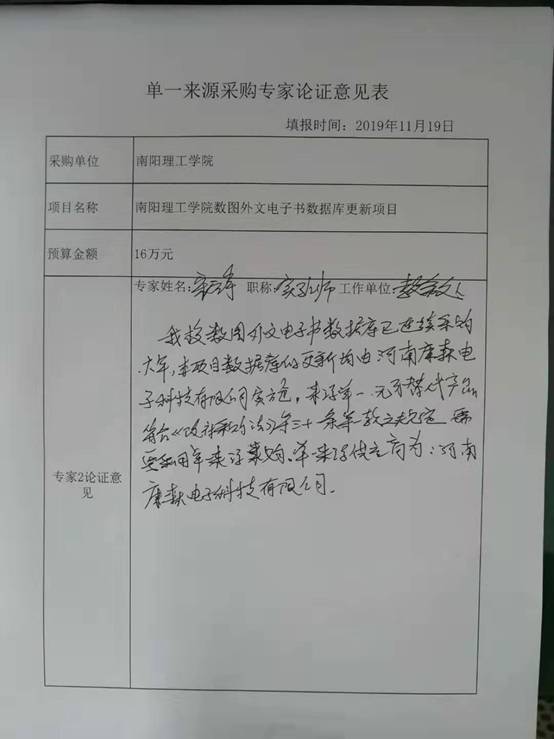 单一来源采购专家论证意见表
填报时间：2019年11月19日
采购单位 南阳理工学院
项目名称 南阳理工学院数图外文电子书数据库更新项目
预算金额 16万元
专家2论证意见
专家姓名: 职称:实验师 工作单位:
我校数图外文电子书数据库已连续采购
六年,本项目数据库的更新均由河南康森电
子科技有限公司实施,来源单一,无可替代产品
符合《政府采购法》第三十一条第一款之规定
采用单一来源采购,单一来源供应商为:河南
康森电子科技有限公司.